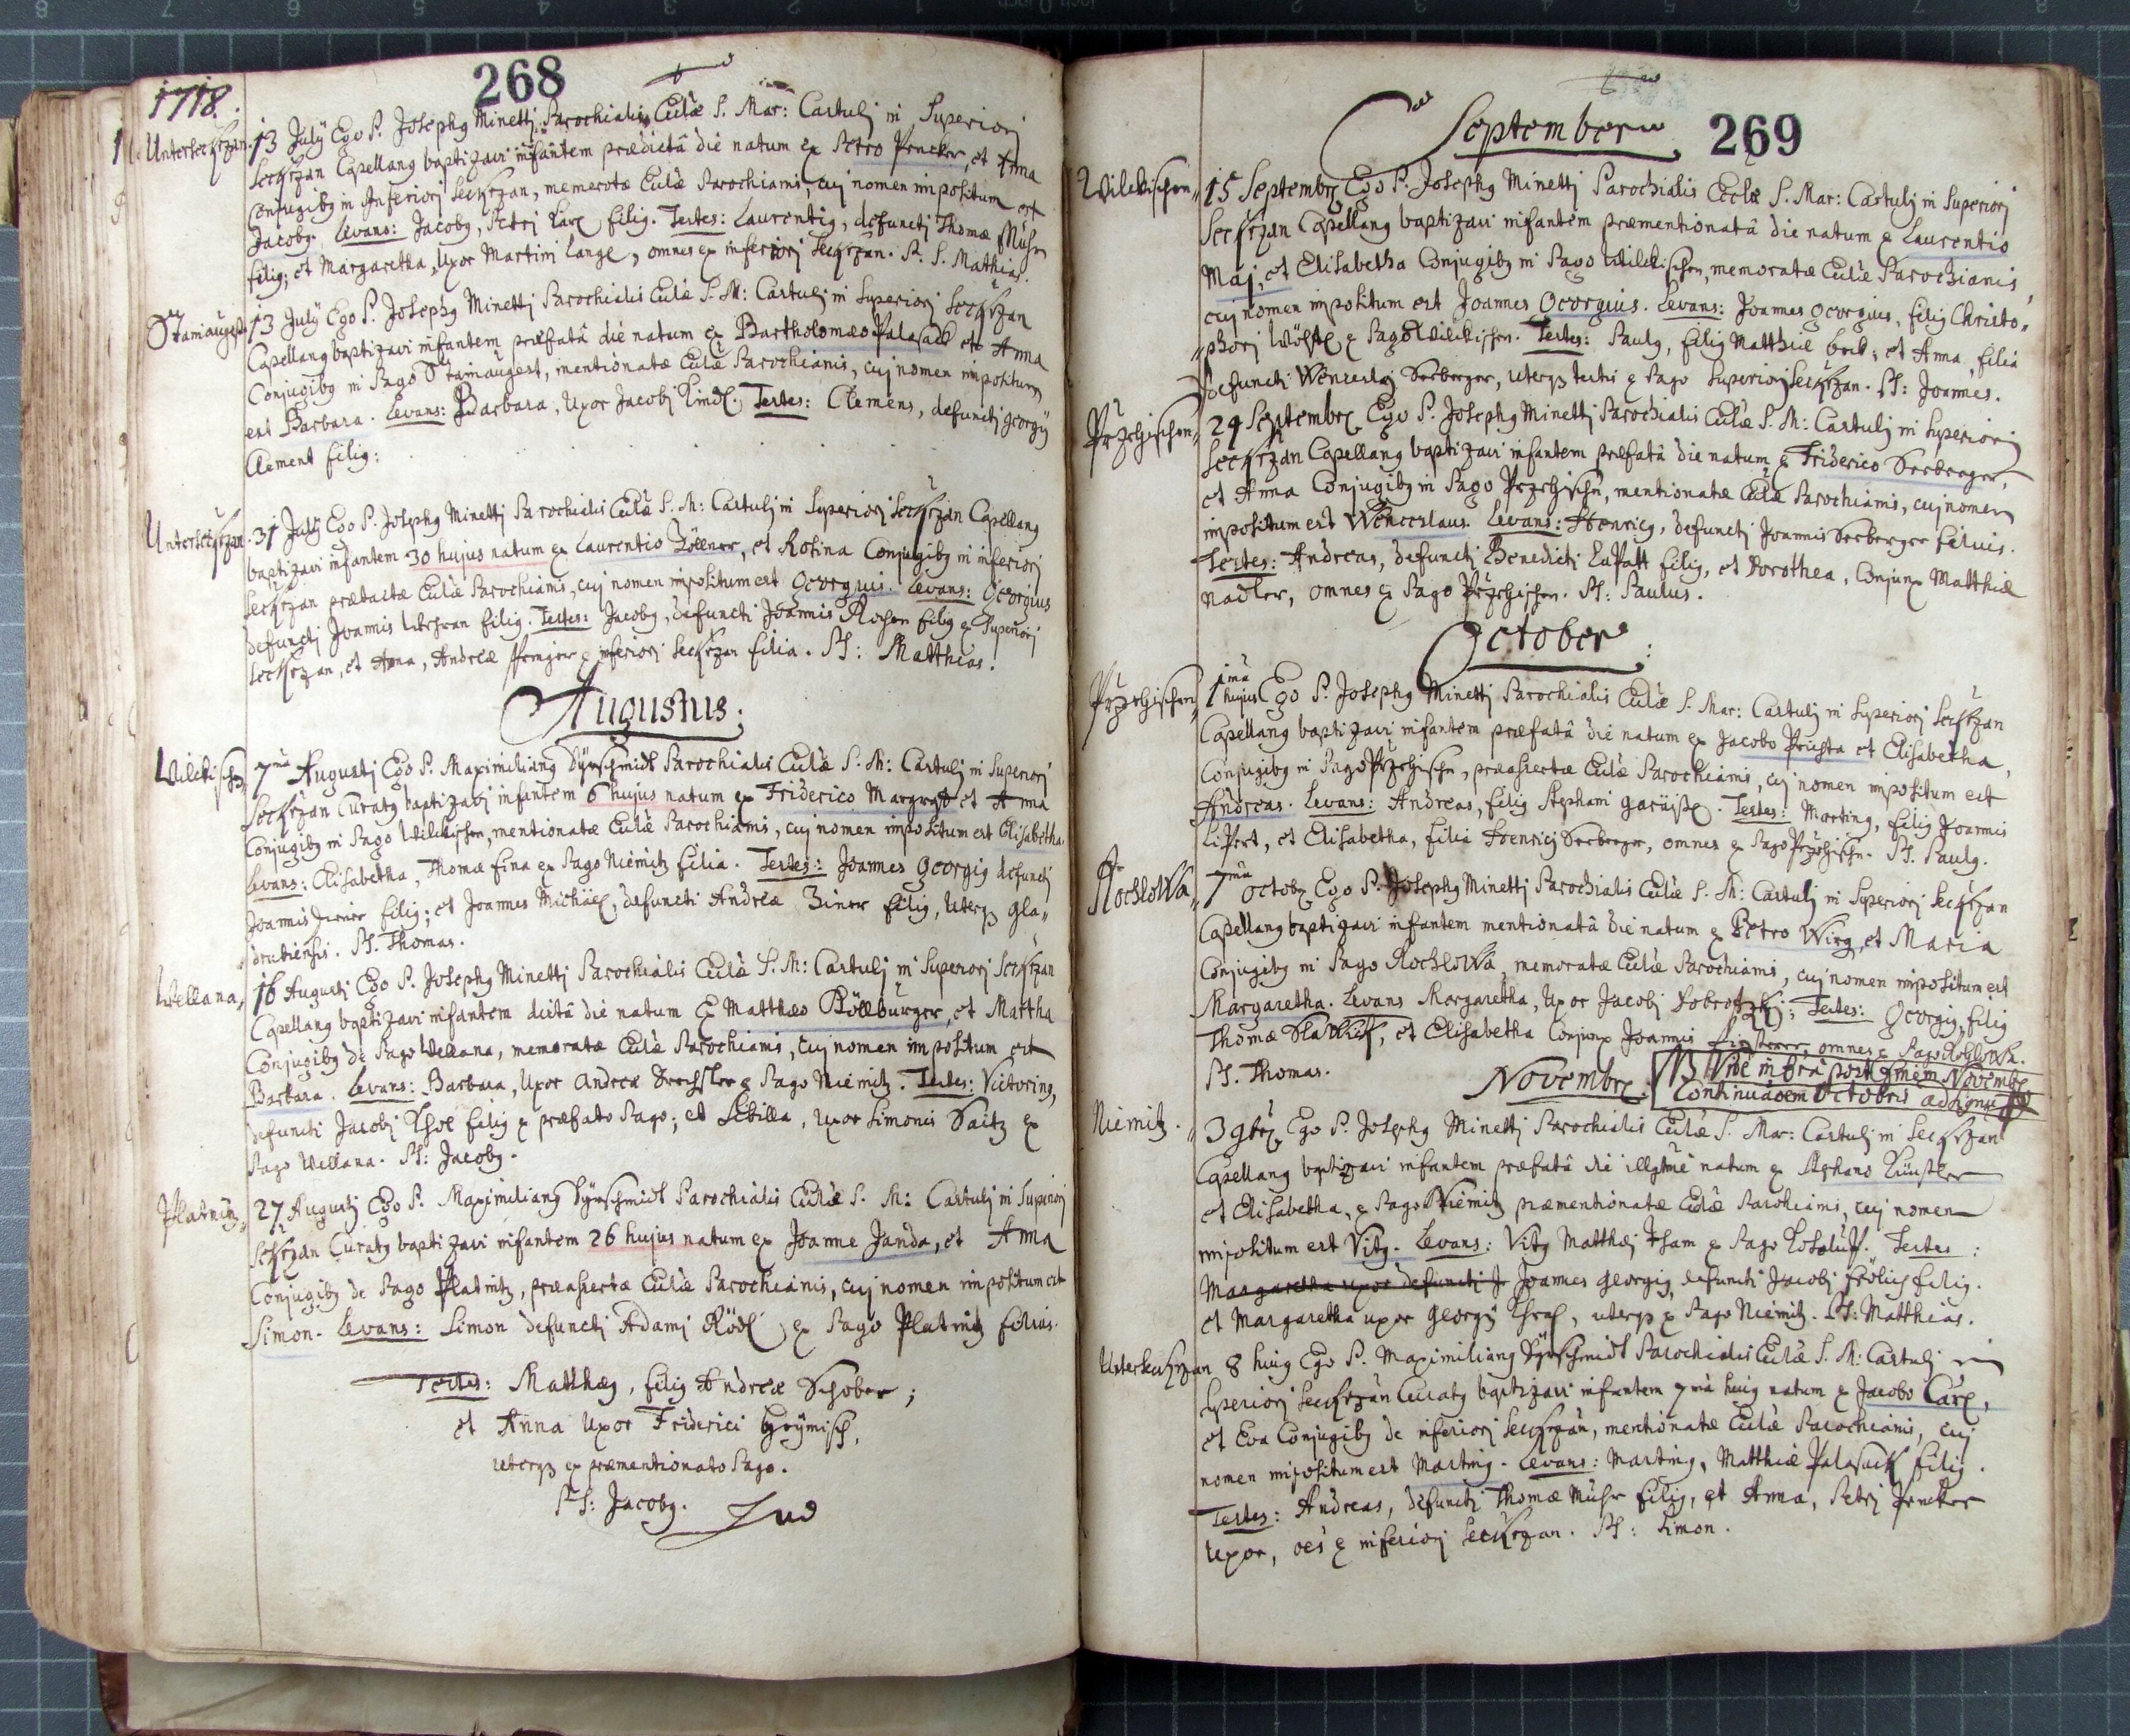 268
1718.
Untersechrzan. 13 July Ego P. Josephg Minettj Parochialis Eculæ S. Mar: Castulj in Superiorj
Sechrzan Capellang baptizavi infantem prædictâ die natum ex Petro Prncker, et Anna
Conjugibg in Inferiorj Sechrzan, memoratæ Eculæ Parochianis, cuj nomen impositum est
Jacobg. Levans: Jacobg, Petrj Carl filig. Testes: Laurentig, defunctj Thomæ Muhr
filig; et Margaretha, Uxor Martini Langl, omnes ex inferiorj Sechrzan. P. S. Mathias.
13 July Ego P. Josephg Minettj Parochialis Eculæ S. M: Castulj in Superiorj Sechrzan
Capellang baptizavi infantem præfatâ die natum ex Bartholomæo Palasack et Anna
Conjugibg in Pago Stamaugest, mentionatæ Eculæ Parochianis, cuj nomen impositum
est Barbara. Levans: Barbara, Uxor Jacobj Kindl. Testes: Clemens, defunctj Georgÿ
Clement filig:
Untersechrzan. 31 July Ego P. Josephg Minettj Parochialis Eculæ S. M: Castulj in Superiorj Sechrzan Capellang
baptizavi infantem 30 hujus natum ex Laurentio Zöllner, et Rosina Conjugibg in inferiorj
Sechrzan prætactæ Eculæ Parochianis, cuj nomen impositum est Georgius. Levans: Georgius
defunctj Joannis filig. Testes: Jacobg, defuncti Joannis filig ex Superiorj
Sechrzan, et Anna, Andreæ inferiorj Sechrzan filia. Pl: Matthias.
Augustus:
Wilckischen, 7mâ Augustj Ego P. Maximiliang Dÿrschmidt Parochialis Eculæ S. M: Castulj in Superiorj
Sechrzan Curatg baptizavj infantem 6 hujus natum ex Friderico Margraf et Anna
Conjugibg in Pago Wilckischen, mentionatæ Eculæ Parochianis, cuj nomen impositum est Elisabetha.
Levans: Elisabetha, Thomæ Fina ex Pago Niemitz filia. Testes: Joannes Georgig defunctj
Joannis filig; et Joannes Michäel, defuncti Andreæ Ziner filig, uterq gla„
drubiensis. Pl. Thomas.
Wellana, 16 Augustj Ego P. Josephg Minettj Parochialis Eculæ S. M: Castulj in Superiorj Sechrzan
Capellang baptizavi infantem dictâ die natum ex Matthæo Röllburger, et Martha
Conjugibg de Pago Wellana, memoratæ Eculæ Parochianis, cuj nomen impositum est
Barbara. Levans: Barbara, Uxor Andreæ Drechsler ex Pago Niemitz. Testes: Victoring,
defuncti Jacobj filig ex præfato Pago; et Sibilla, Uxor Simonis Saitz ex
Pago Wellana. Pl: Jacobg.
Platnitz, 27 Augustj Ego P. Maximiliang Dÿrschmidt Parochialis Eculæ S. M: Castulj in Superiorj
Sechrzan Curatg baptizavi infantem 26 hujus natum ex Joanne Janda, et Anna
Conjugibg de Pago Platnitz, præassertæ Eculæ Parochianis, cuj nomen impositum est
Simon. Levans: Simon defunctj Adamj Rödl ex Pago Platnitz filius.
Testes: Matthæg, filig Andreæ Schober;
et Anna Uxor Friderici
uterq ex præmentionato Pago.
Pl: Jacobg.
September 269
Wilckischen„ 15 Septembr Ego P. Josephg Minettj Parochialis Eculæ S. Mar: Castulj in Superiorj
Sechrzan Capellang baptizavi infantem præmentionatâ die natum ex Laurentio
Maj, et Elisabetha Conjugibg in Pago Wilckischen, memoratæ Eculæ Parochianis,
cuj nomen impositum est Joannes Georgius. Levans: Joannes Georgius, filig Christo„
„phorj Wölfl ex Pago Wilckischen. Testes: Paulg, filig Matthiæ beck; et Anna, filia
defuncti Wenceslaj Seeberger, uterq testis ex Pago Superiorj Sechrzan. Pl: Joannes.
Przehischen, 29 Septembr Ego P. Josephg Minettj Parochialis Eculæ S. M: Castulj in Superiorj
Sechrzan Capellang baptizavi infantem præfatâ die natum ex Friderico Seeberger,
et Anna Conjugibg in Pago Przehischn, mentionatæ Eculæ Parochianis, cuj nomen
impositum est Wenceslaus. Levans: Henricg, defuncti Joannis Seeberger filuis.
Testes: Andreas, defuncti Benedicti filig, et Dorothea, Conjunx Matthiæ
Nadler, omnes ex Pago Przehischen. Pl: Paulus.
October:
Przehischen, 1mâ hujus Ego P. Josephg Minettj Parochialis Eculæ S. Mar: Castulj in Superiorj Sechrzan
Capellang baptizavj infantem præfatâ die natum ex Jacobo et Elisabetha,
Conjugibg in Pago Przehischn, præassertæ Eculæ Parochianis, cuj nomen impositum est
Andreas. Levans: Andreas, filig Stephani. Testes: Marting, filig Joannis
Lippert, et Elisabetha, filia Henricj Seeberger, omnes ex Pago Przehischn. Pl. Paulg.
Rochlowa, 7mâ octobr Ego P. Josephg Minettj Parochialis Eculæ S. M: Castulj in Superiorj Sechrzan
Capellang baptizavi infantem mentionatâ die natum ex Petro Wirg, et Maria
Conjugibg in Pago Rochlowa, memoratæ Eculæ Parochianis, cuj nomen impositum est
Margaretha. Levans Margaretha, Uxor Jacobj; Testes: Georgig, filig
Thomæ, et Elisabetha Conjunx Joannis, omnes ex Pago Rochlowa.
Pl. Thomas.
Novembr. NB Vide infra post finem Novembr
Continuaoem Octobris
Niemitz. 3 9br Ego P. Josephg Minettj Parochialis Eculæ S. Mar: Castulj in Sechrzan
Capellang baptizavi infantem præfatâ die natum ex Stephano Künstler
et Elisabetha, ex Pago Niemitz præmentionatæ Eculæ Parochianis, cuj nomen
impositum est Vitg. Levans: Vitg Matthæj ex Pago. Testes:
Margaretha uxor defuncti J Joannes Georgig, defuncti Jacobj Frölich filig.
et Margaretha uxor Georgÿ, uterq ex Pago Niemitz. Pl: Matthias.
Untersechrzan 8 huig Ego P. Maximiliang Dÿrschmidt Parochialis Eculæ S. M: Castulj in
Superiorj Sechrzan Curatg baptizavi infantem 7mâ huig natum ex Jacobo Carl,
et Eva Conjugibg de inferiorj Sechrzan, mentionatæ Eculæ Parochianis, cuj
nomen impositum est Marting. Levans: Marting, Matthiæ Palasack filig.
Testes: Andreas, defunctj Thomæ Muhr filig, et Anna, Petrj Prncker
Uxor, oes ex inferiorj Sechrzan. Pl: Simon.